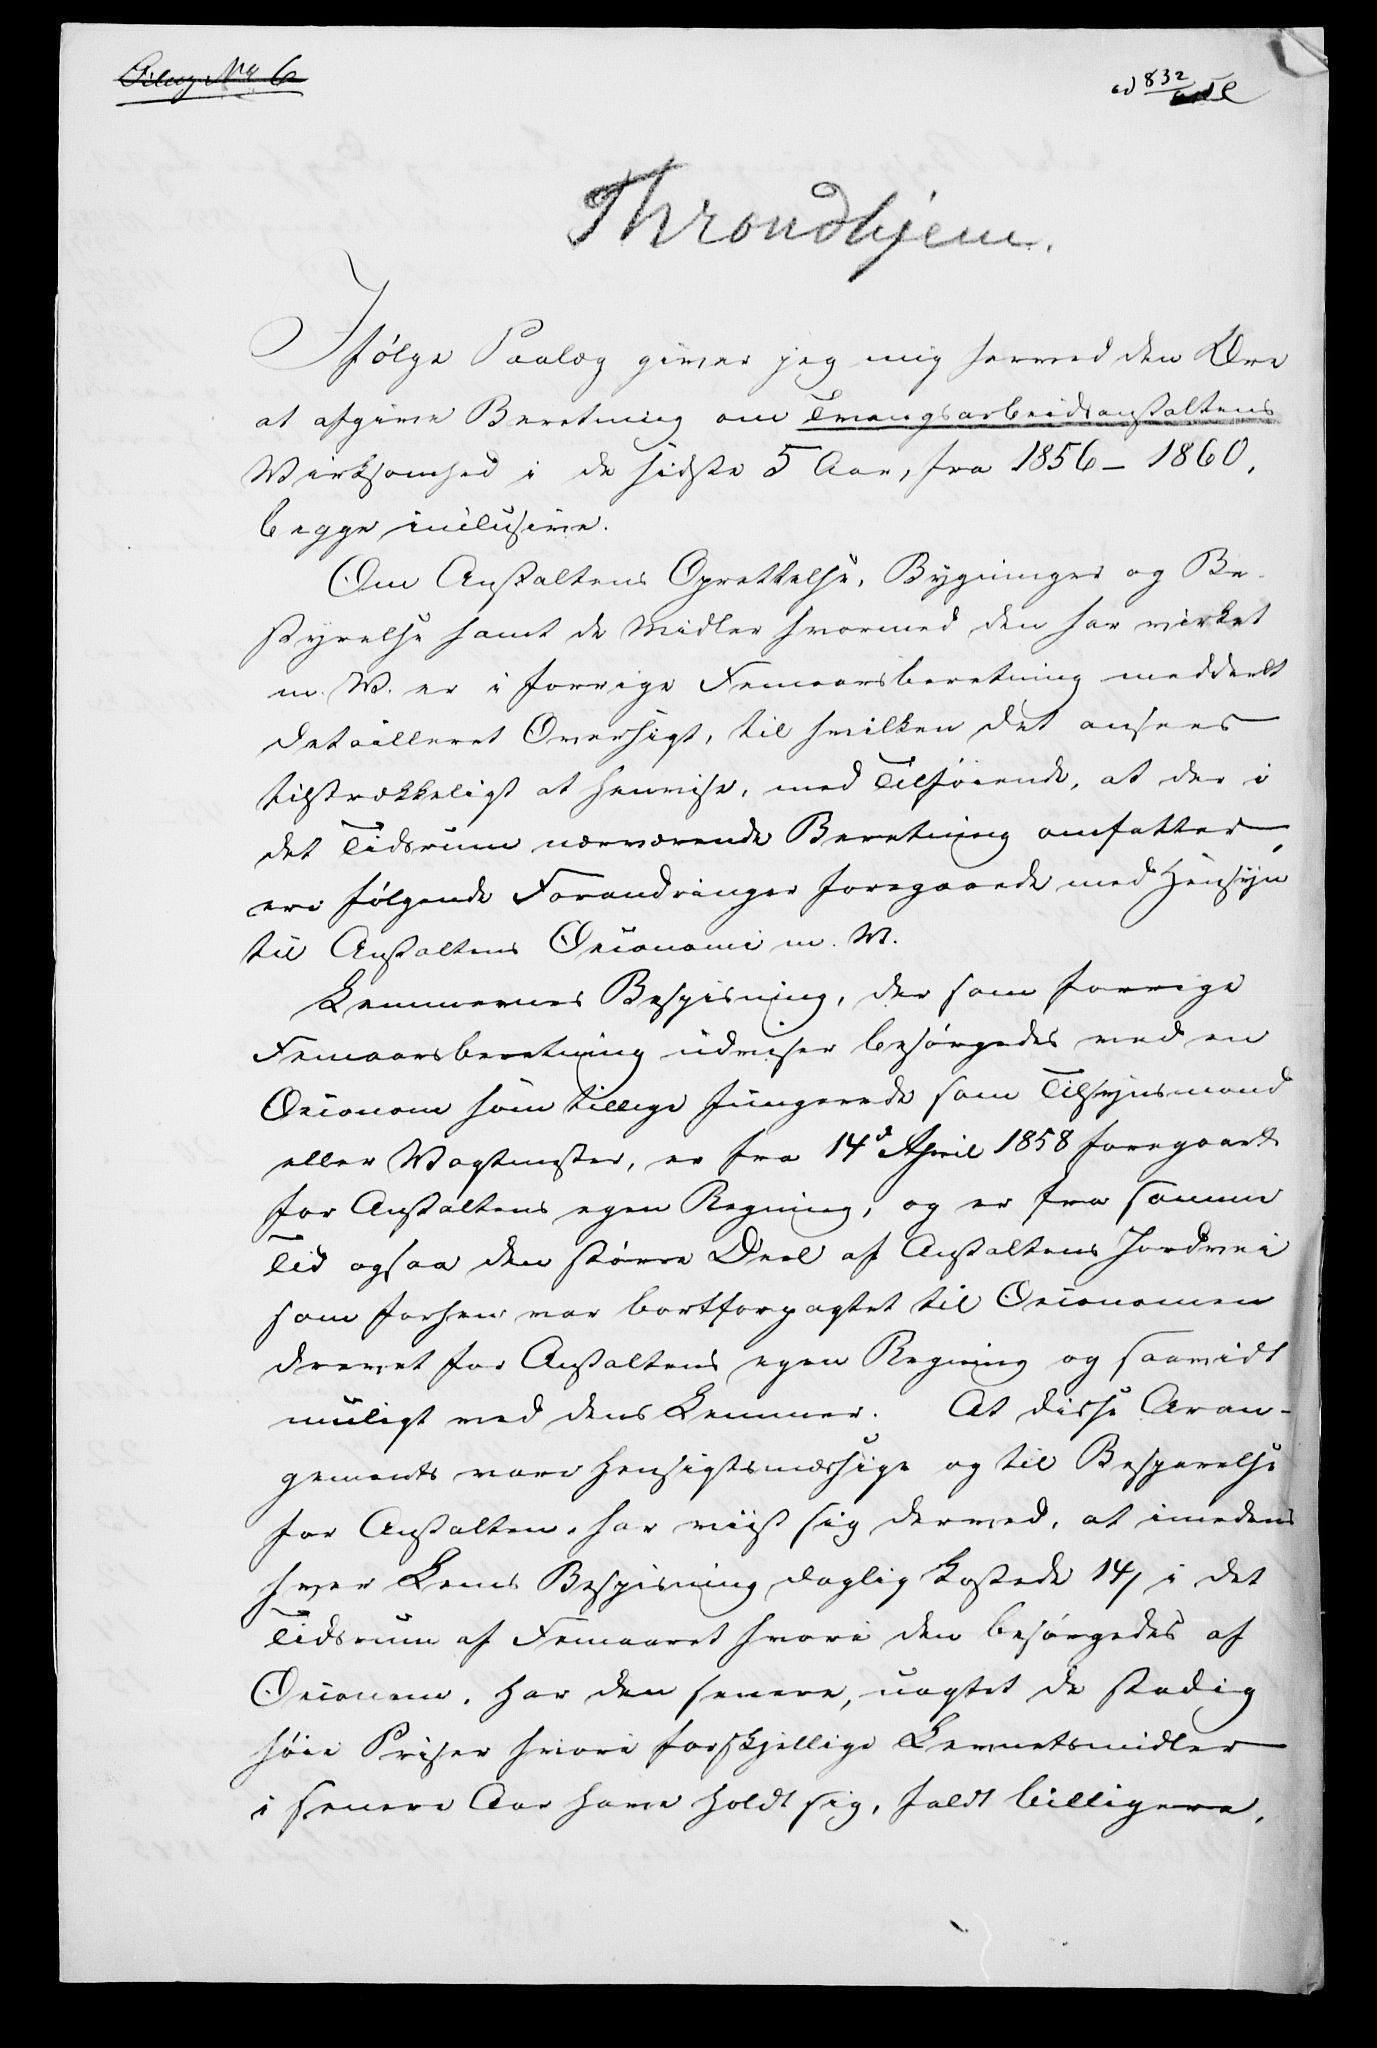 Bilag No 6
ad 832
Throndhjem.
Ifølge Paalæg giver jeg mig herved den Ære
at afgive Beretning om Tvangsarbeidsanstaltens
Virksomhed i de sidste 5 Aar, fra 1856 – 1860,
begge inclusive.
Om Anstaltens Oprettelse, Bygninger og Be-
styrelse samt de Midler hvormed den har virket
m. V. er i forrige Femaarsberetning meddeelt
detailleret Oversigt, til hvilken det ansees
tilstrækkeligt at henvise, med Tilføiende, at der i
det Tidsrum nærværende Beretning omfatter,
ere følgende Forandringer foregaaede med Hensyn
til Anstaltens Øconomi m. V.
Lemmernes Bespisning, der som forrige
Femaarsberetning udviser besørgedes ved en
Øconom som tillige fungerede som Tilsynsmand
eller Vagtmester, er fra 14d April 1858 foregaaet
for Anstaltens egen Regning, og er fra samme
Tid ogsaa den større Deel af Anstaltens Jordvei
som forhen var bortforpagtet til Øconomen
drevet for Anstaltens egen Regning og saavidt
muligt ved dens Lemmer. At disse Aran-
gements vare hensigtsmæssige og til Besparelse
for Anstalten, har viist sig derved, at imedens
hver Lems Bespisning daglig kostede 14/ i det
Tidsrum af Femaaret hvori den besørgedes af
Øconom, har den senere, uagtet de stadig
høie Priser hvori forskjellige Levnetsmidler
i senere Aar have holdt sig, faldt billigere,